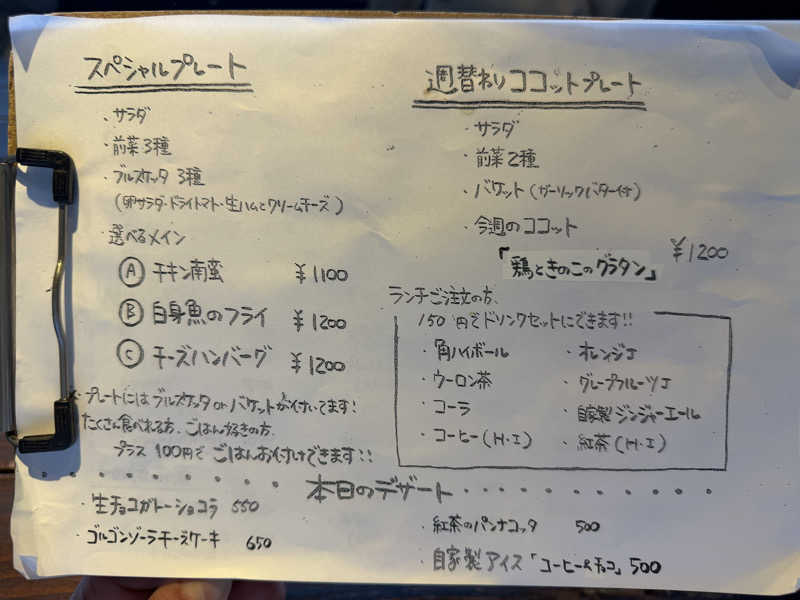 スペシャルプレート
・サラダ
・前菜3種
・ブルスケッタ 3種
(卵サラダ・ドライトマト・生ハムとクリームチーズ)
・選べるメイン
Ⓐ チキン南蛮 ¥1100
Ⓑ 白身魚のフライ ¥1200
Ⓒ チーズハンバーグ ¥1200
プレートにはブルスケッタorバケットが付いてます!
たくさん食べれる方、ごはん好きの方、
プラス 100円で ごはんお付けできます!!
週替わりココットプレート
・サラダ
・前菜2種
・バケット(ガーリックバター付)
・今週のココット
「鶏ときのこのグラタン」 ¥1200
ランチご注文の方、
150円でドリンクセットにできます!!
・角ハイボール ・オレンジJ
・ウーロン茶 ・グレープフルーツJ
・コーラ ・自家製ジンジャーエール
・コーヒー(H・I) ・紅茶(H・I)
本日のデザート
・生チョコガトーショコラ 550
・ゴルゴンゾーラチーズケーキ 650
・紅茶のパンナコッタ 500
・自家製アイス「コーヒー&チョコ」500